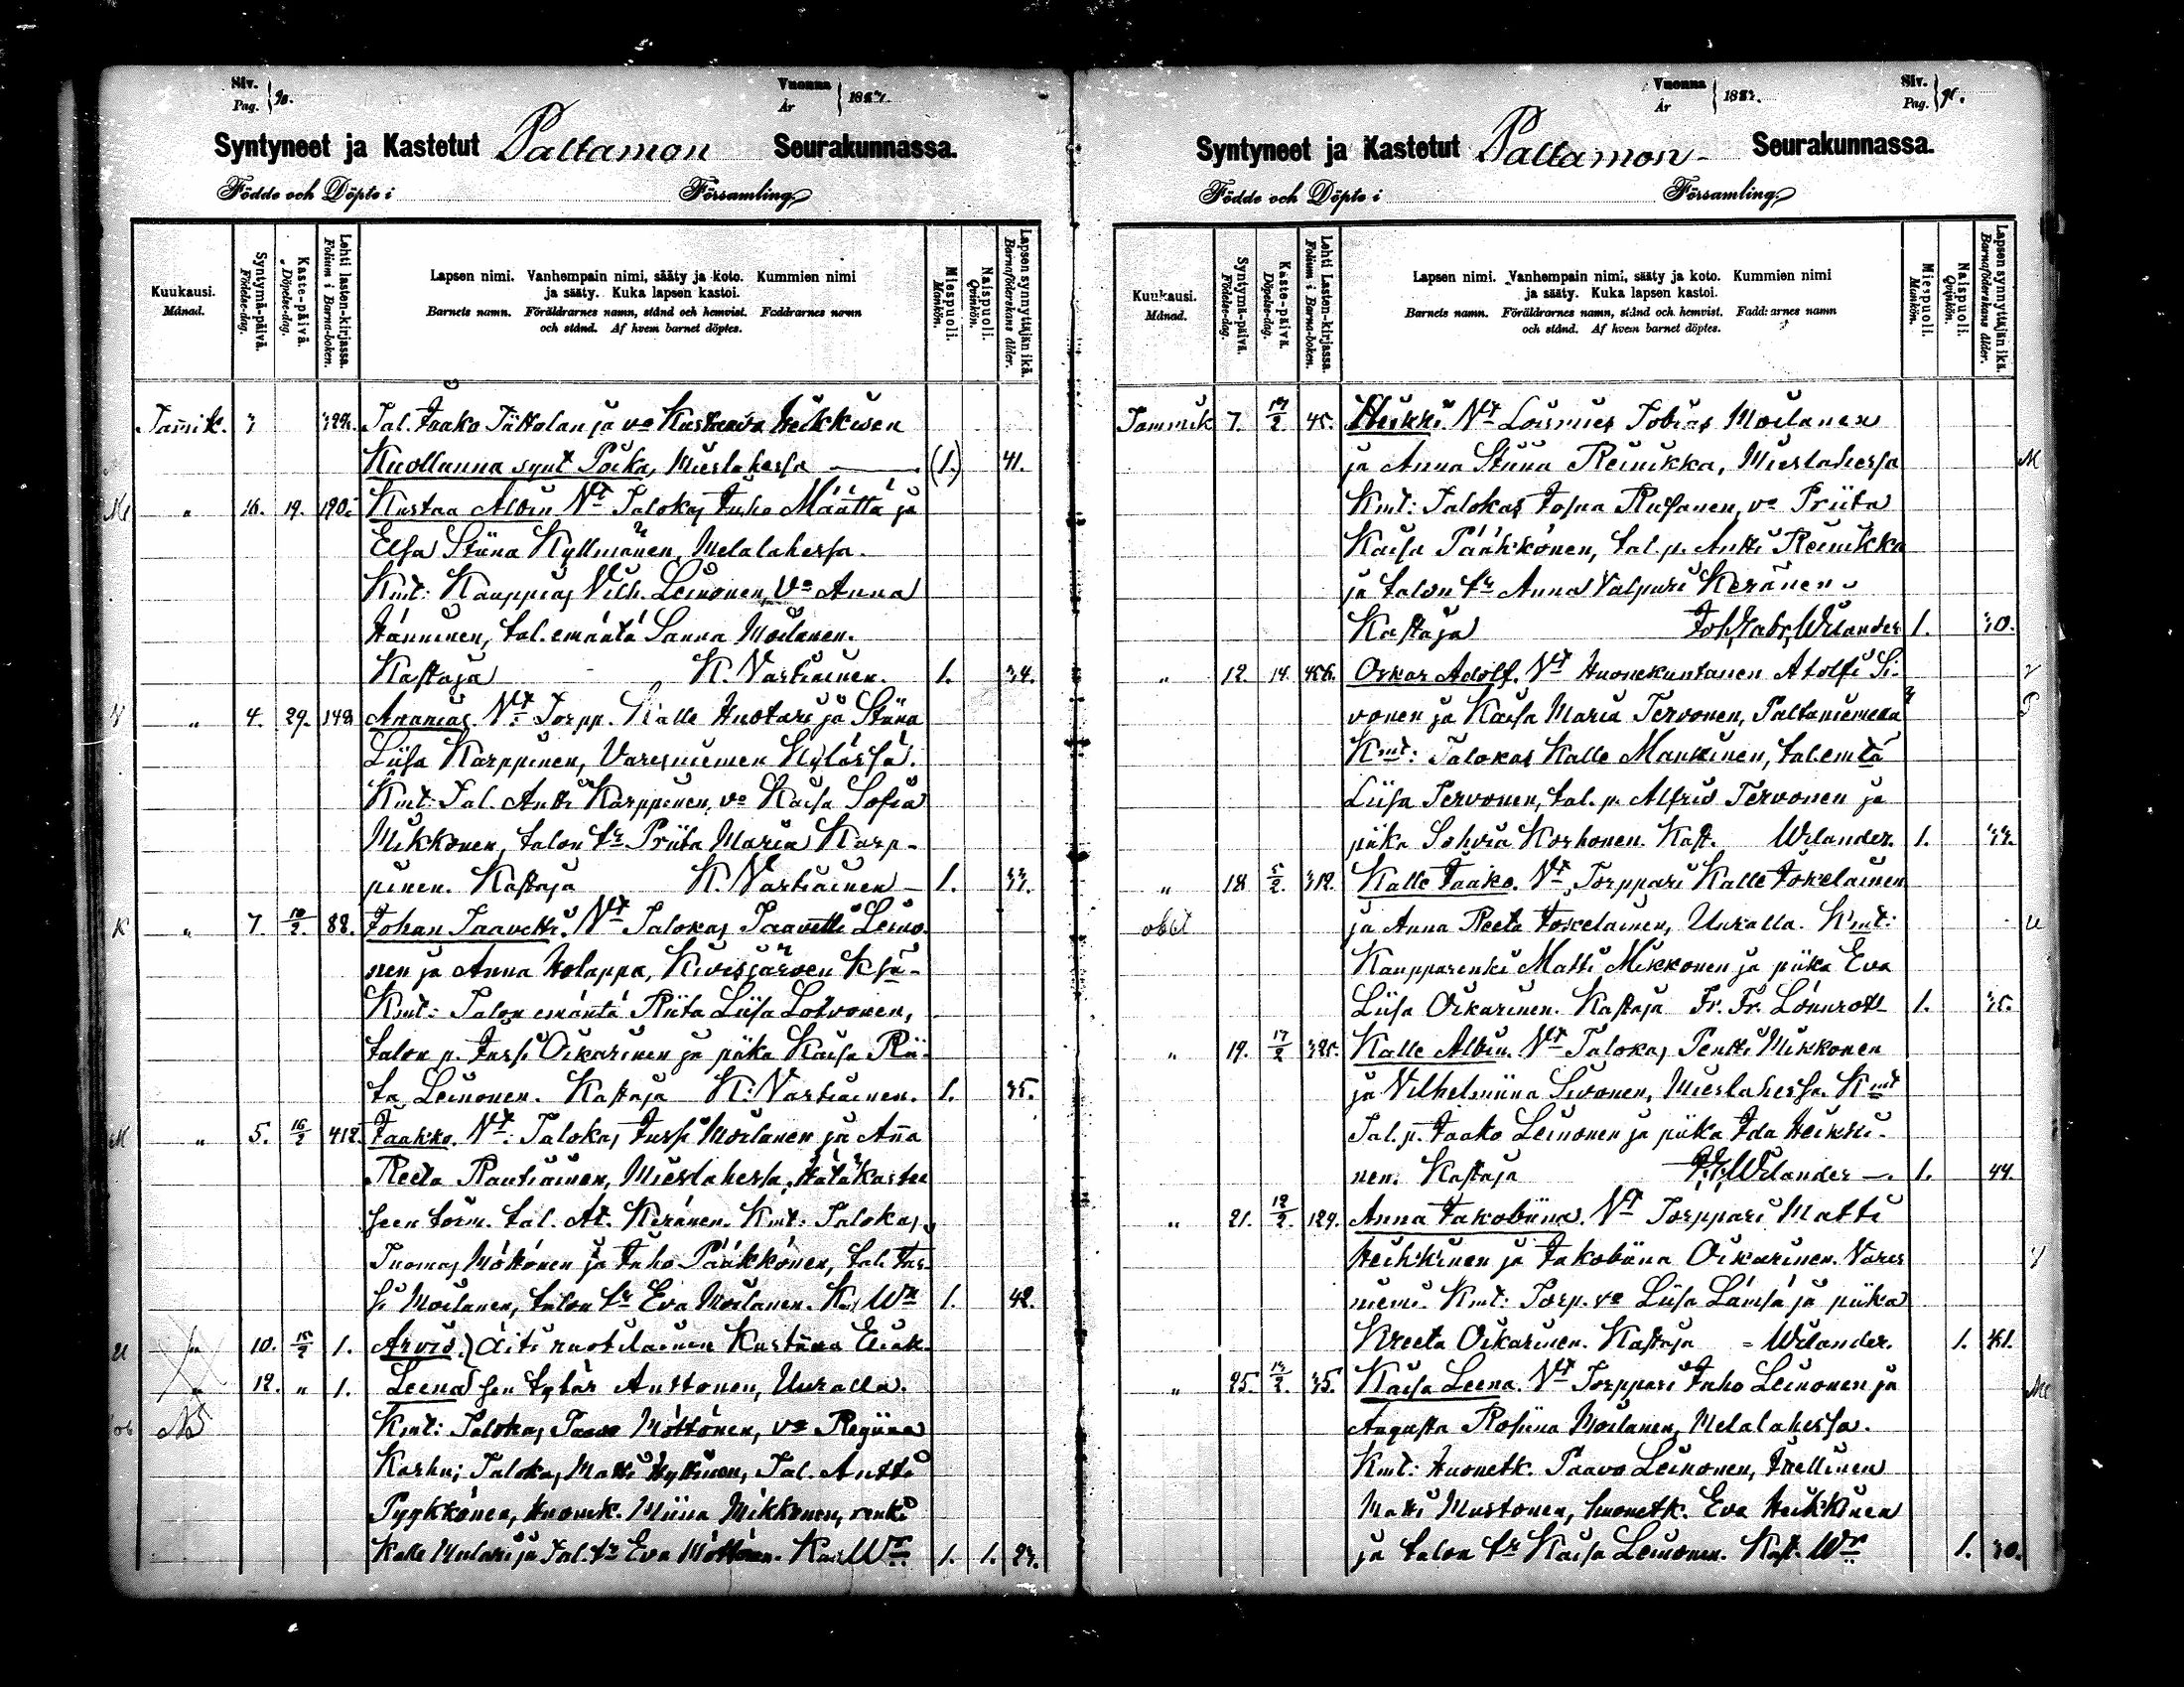 Siv.
Pag. 90.
Vuonna
År 1887.
Syntyneet ja Kastetut Paltamon Seurakunnassa.
Födde och Döpte i Församling.
Kuukausi.
Månad.
Syntymä-päivä.
Födelse-dag.
Kaste-päivä.
Döpelse-dag.
Lehti lasten-kirjassa.
Folium i Barna-boken.
Lapsen nimi. Vanhempain nimi, sääty ja koto. Kummien nimi
ja sääty. Kuka lapsen kastoi.
Barnets namn. Föräldrarnes namn, stånd och hemvist. Faddrarnes namn
och stånd. Af hvem barnet döptes.
Miespuoli.
Mankön.
Naispuoli.
Qvinkön.
Lapsen synnyttäjän ikä.
Barnaföderskans ålder.
Tammik. Tal. Jaako ja vo Kustaava Heikkisen
Kuollunna synt Poika, Mieslahessa (1.) 41.
" 16. 19. 190. Kustaa Albin Vt Talokas Juho Määttä ja
Elsa Stiina Kyllönen, Melalahessa.
Kmt: Kauppias Vilh. Leinonen, Vo Anna
Hänninen, tal. emäntä Sanna Moilanen.
Kastaja K. Vartiainen. 1. 34.
" 4. 29. 148. Ananias Vt Torpp. Kalle Huotari ja Stiina
Liisa Karppinen, Varisniemen Kylässä.
Kmt: Tal. Antti Karppinen, vo Kaisa Sofia
Mikkonen, talon tr Priita Maria Karp-
pinen. Kastaja K. Vartiainen 1. 33.
K " 7. 10/2. 88. Johan Taavetti. Vt Talokas Taavetti Leino-
nen ja Anna Holappa, Kivesjärven
Kmt: Talon emäntä Riita Liisa Lotvonen,
talon p. Jussi Oikarinen ja piika Kaisa Rii-
ta Leinonen. Kastaja K. Vartiainen. 1. 35.
M " 5. 16/2 412. Jaakko. Vt: Talokas Jussi Moilanen ja Anna
Reeta Rautiainen, Mieslahessa. Hätäkasteen
seen toim. tal. At. Keränen. Kmt: Talokas
Tuomas Möttönen ja Juho Pääkkönen, tal: Jus-
si Moilanen, talon tr Eva Moilanen. Kas. Wr 1. 42.
U " 10. 15/2 1. Arvid. Äiti ruotilainen Kustaava
" 12. " 1. Leena sen tytär Anttonen, Uuralla.
Kmt: Talokas Paavo Möttönen, vo Regiina
Karhu; Talokas Matti Hyttinen, Tal. Antti
Pyykkönen, Huonek. Miina Mikkonen, renki
Kalle Mulari ja Tal. tr Eva Möttönen. Kas. Wr 1. 1. 23.
Vuonna
År 1887.
Siv.
Pag. 91.
Syntyneet ja Kastetut Paltamon Seurakunnassa.
Födde och Döpte i Församling.
Kuukausi.
Månad.
Syntymä-päivä.
Födelse-dag.
Kaste-päivä.
Döpelse-dag.
Lehti Lasten-kirjassa.
Folium i Barna-boken.
Lapsen nimi. Vanhempain nimi, sääty ja koto. Kummien nimi
ja sääty. Kuka lapsen kastoi.
Barnets namn. Föräldrarnes namn, stånd och hemvist. Faddrarnes namn
och stånd. Af hvem barnet döptes.
Miespuoli.
Mankön.
Naispuoli.
Qvinkön.
Lapsen synnyttäjän ikä.
Barnaföderskans ålder.
Tammik 7. 17/2 45. Heikki. Vt Loismies Tobias Moilanen
ja Anna Stiina Reinikka, Mieslahessa M
Kmt: Talokas Josua Rusanen, vo Priita
Kaisa Pääkkönen, tal. p. Antti Reinikka
ja talon tr Anna Valpuri Keränen.
Kastaja Joh. Gabr. Wilander 1. 30.
" 12. 14. 456. Oskar Adolf. Vt Huonekuntanen Atolfi Si-
vonen ja Kaisa Maria Tervonen, Paltaniemellä P
Kmt: Talokas Kalle Mankinen, tal. emtä
Liisa Tervonen, tal. p. Alfrid Tervonen ja
piika Sohvia Korhonen. Kast. Wilander. 1. 33.
" 18 5/2. 312. Kalle Jaako. Vt Torppari Kalle Jokelainen
obit ja Anna Reeta Jokelainen, Uuralla. Kmt: U
Kaupparenki Matti Mikkonen ja piika Eva
Liisa Oikarinen. Kastaja Fr. Fr. Lönnrott 1. 35.
" 19. 17/2 325. Kalle Albin. Vt Talokas Pentti Mikkonen
ja Vilhelmiina Sivonen, Mieslahessa. Kmt
Tal. p. Jaako Leinonen ja piika Ida Heikki-
nen. Kastaja Wilander 1. 44.
" 21. 12/2. 129. Anna Jakobiina. Vt Torppari Matti
Heikkinen ja Jakobiina Oikarinen. Varis
niemi. Kmt: Torp. vo Liisa Lämsä ja piika
Kreeta Oikarinen. Kastaja = Wilander. 1. 41.
" 25. 13/2. 35. Kaisa Leena. Vt Torppari Juho Leinonen ja
Augusta Rosiina Moilanen, Melalahessa.
Kmt: Huonetk. Paavo Leinonen, Itellinen
Matti Mustonen, huonetk. Eva Heikkinen
ja talon tr Kaisa Leinonen. Kast. Wr 1. 30.